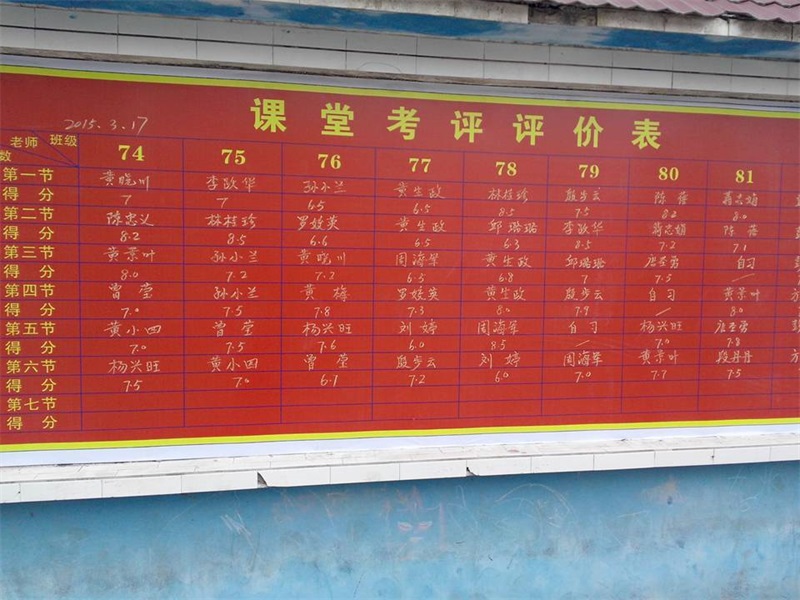 课堂考评评价表
2015.3.17
老师 班级 74 75 76 77 78 79 80 81
数
第一节 黄晓川 李政华 孙小兰 黄生政 林桂珍 殷步云 陈蓓
得分 7 7 6.5 6.5 8.5 7.5 8.2 8.0
第二节 陈忠义 林桂珍 罗娥英 黄生政 邱璐璐 李政华 蒋志娟 陈蓓
得分 8.2 8.5 6.6 6.5 6.3 8.5 7.2 7.1
第三节 黄景叶 孙小兰 黄晓川 周海军 黄生政 邱璐璐 自习
得分 8.0 7.2 7.2 6.3 6.8 7 7.5
第四节 曾莹 孙小兰 黄梅 罗娥英 黄生政 殷步云 自习 黄景叶
得分 7.0 7.5 7.8 7.3 8.0 7.9 8.0
第五节 黄小四 曾莹 杨兴旺 刘婷 周海军 自习 杨兴旺
得分 7.0 7.5 7.6 6.0 8.5 7.0 7.8
第六节 杨兴旺 黄小四 曾莹 殷步云 刘婷 周海军 黄景叶 段丹丹
得分 7.5 7.0 6.1 7.2 6.0 7.0 7.7 7.5
第七节
得分